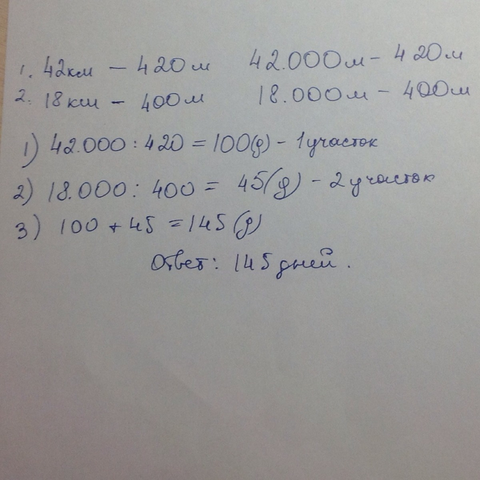 1. 42км — 420м 42.000м — 420м
2. 18км — 400м 18.000м — 400м
1) 42.000 : 420 = 100(д) - 1 участок
2) 18.000 : 400 = 45(д) - 2 участок
3) 100 + 45 = 145(д)
Ответ: 145 дней.